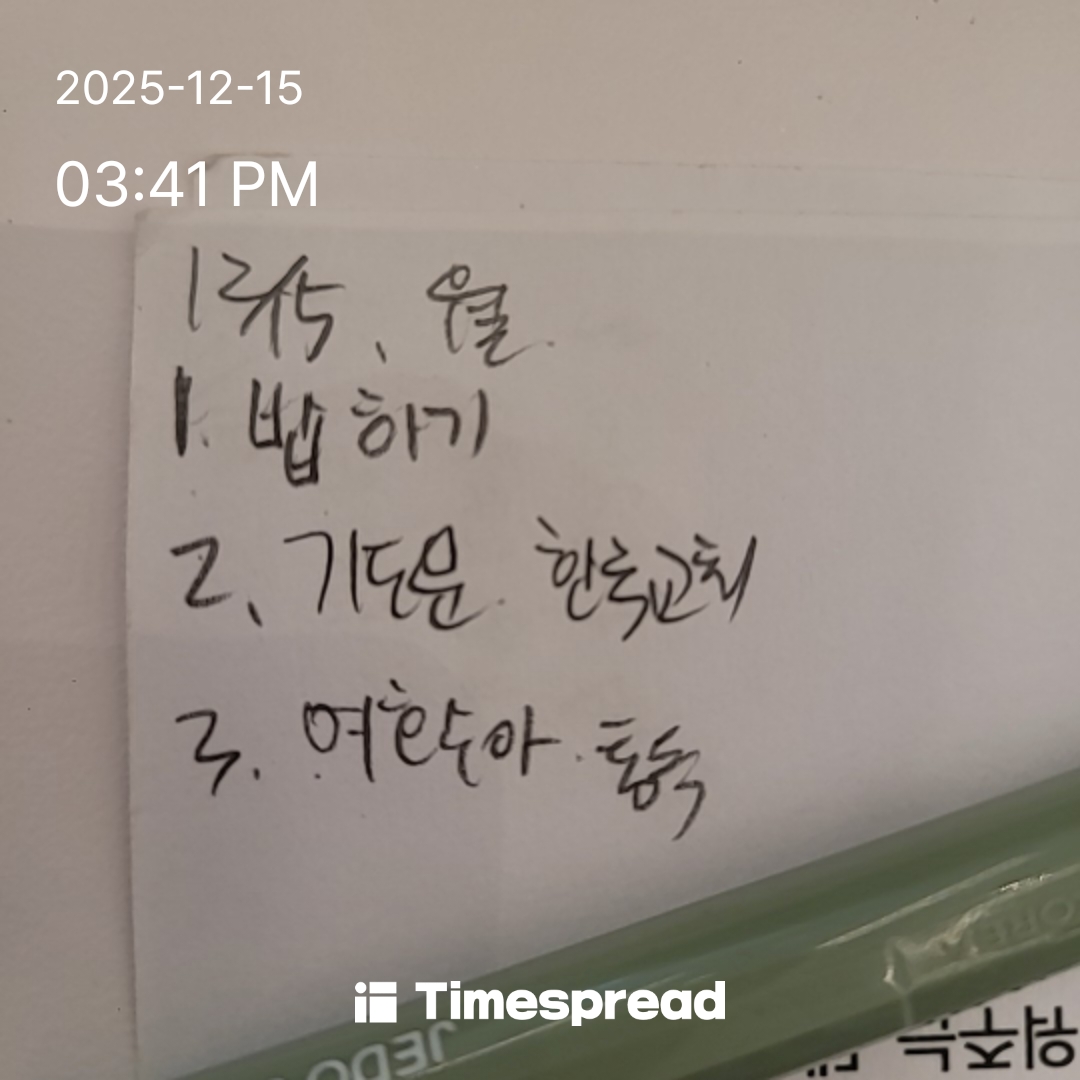 2025-12-15
03:41 PM
12/15, 월
1. 밥 하기
2. 기도문 한국교회
3. 여호수아.
Timespread
JEDO
워주는